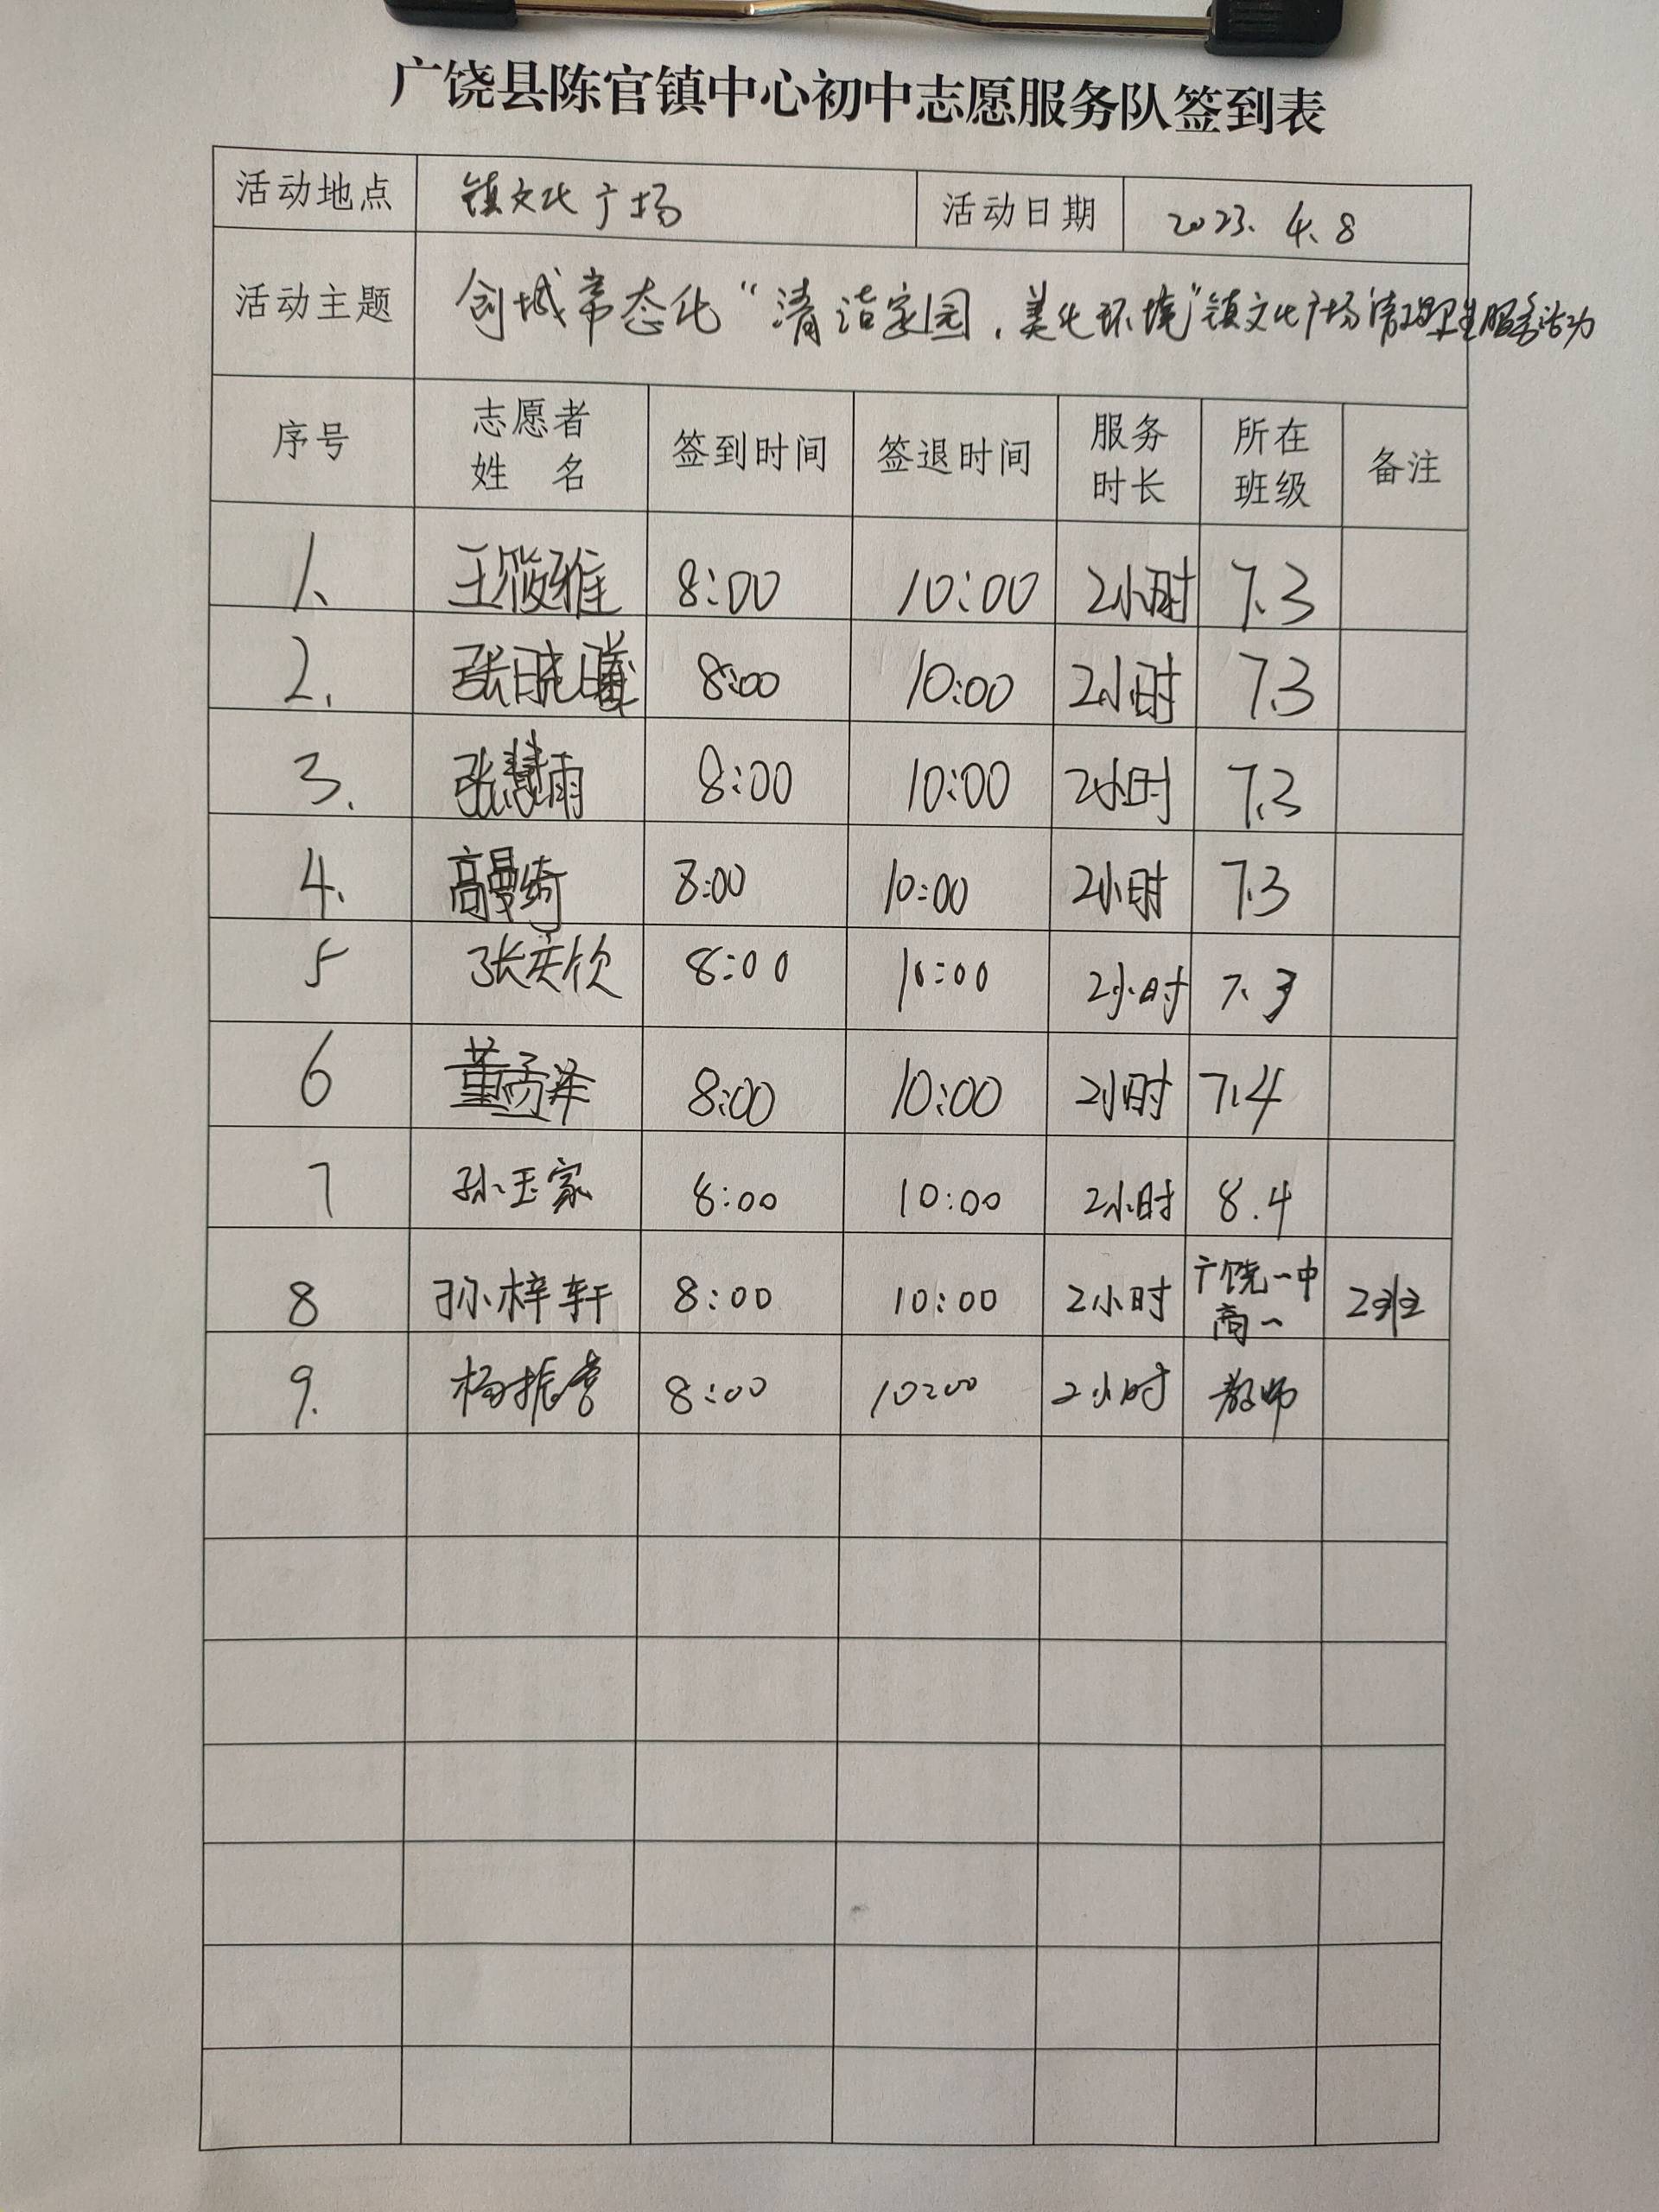 广饶县陈官镇中心初中志愿服务队签到表
活动地点 镇文化广场 活动日期 2023.4.8
活动主题 创城常态化“清洁家园,美化环境”镇文化广场清理卫生服务活动
序号 志愿者姓名 签到时间 签退时间 服务时长 所在班级 备注
1、 王筱雅 8:00 10:00 2小时 7.3
2. 张晓曦 8:00 10:00 2小时 7.3
3. 张慧雨 8:00 10:00 2小时 7.3
4. 高曼绮 8:00 10:00 2小时 7.3
5 张庆欣 8:00 10:00 2小时 7.3
6 董雨泽 8:00 10:00 2小时 7.4
7 孙玉家 8:00 10:00 2小时 8.4
8 孙梓轩 8:00 10:00 2小时 广饶一中高一 2班
9. 杨振 8:00 10:00 2小时 教师